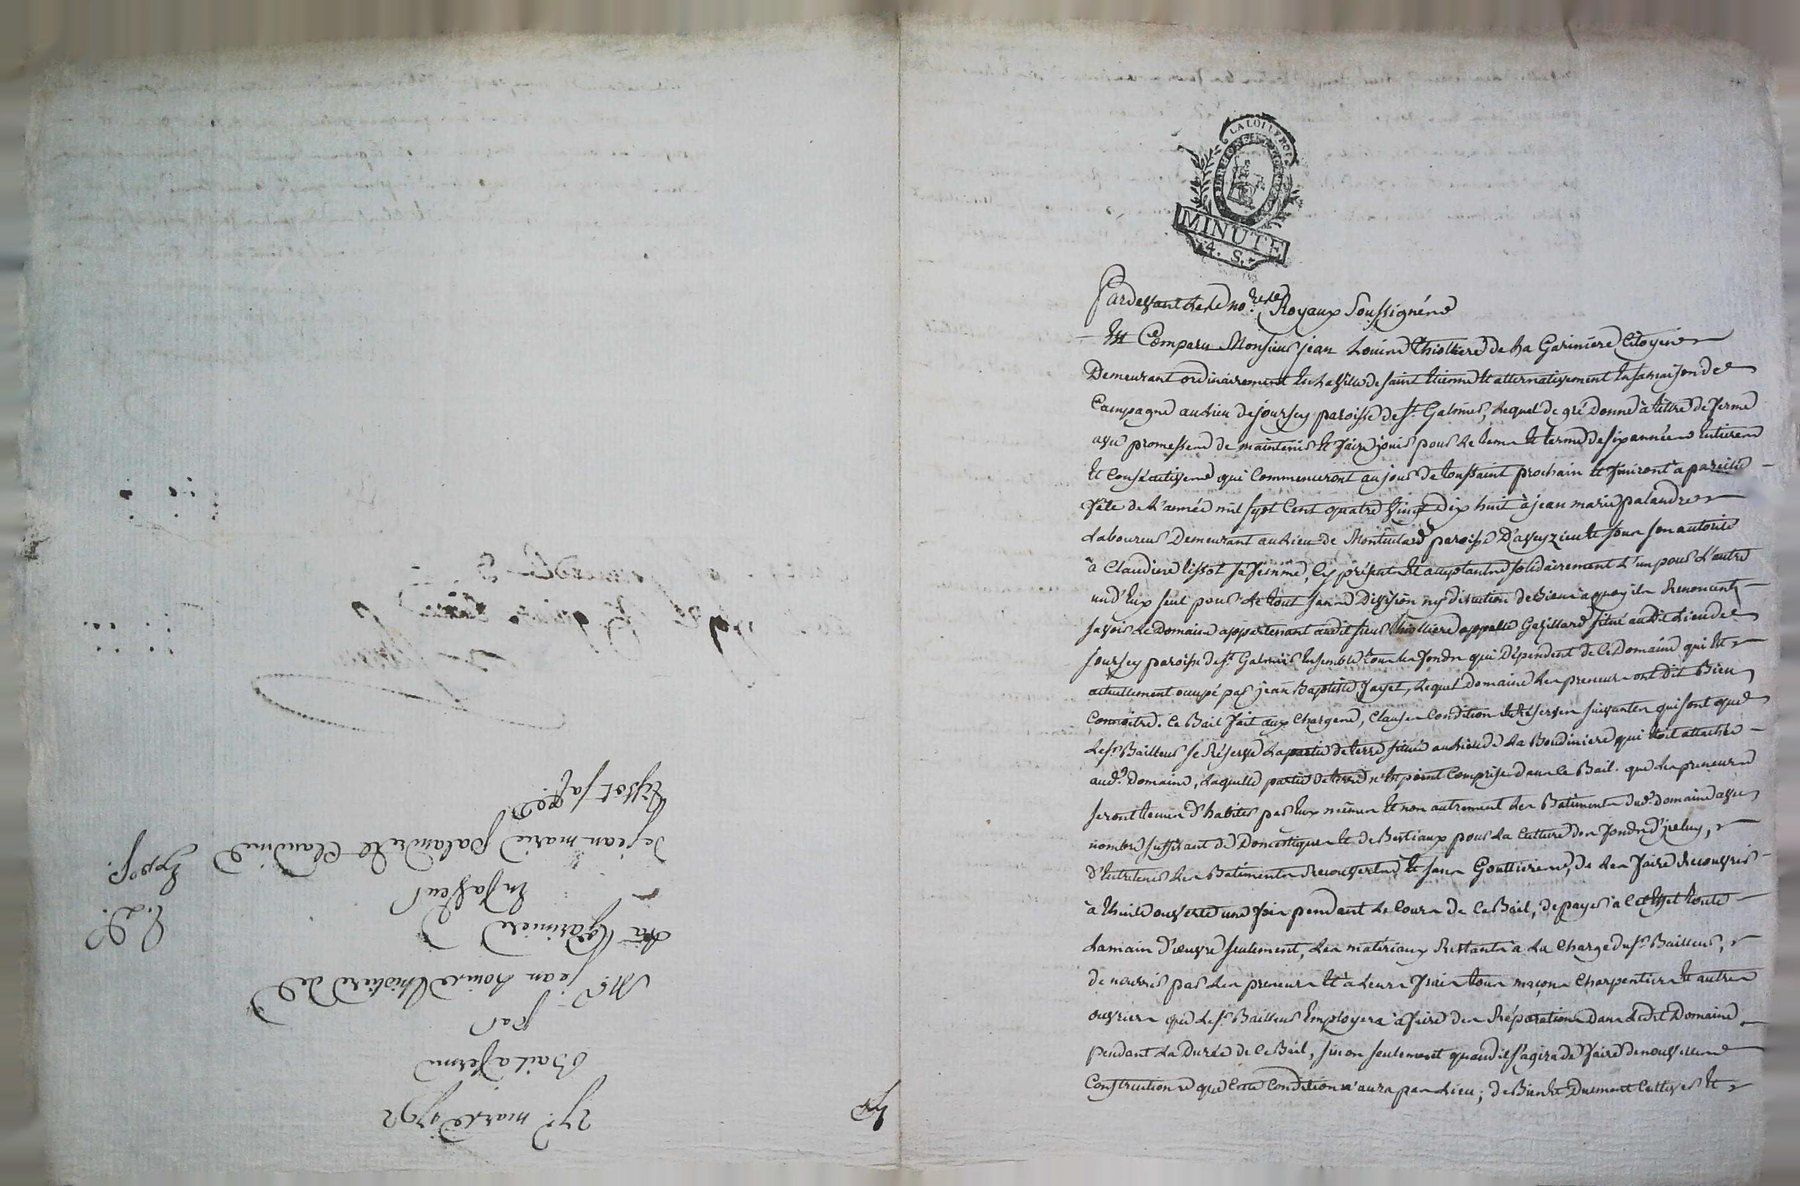 LA LOI LE ROI
MINUTE
4. S.
Pardevant les no.res Royaux soussignés
Est Comparu Monsieur jean Louis Thiolliere de La Gariniere Citoyen
Demeurant ordinairement En la ville de saint Etienne Et alternativement En sa maison de
Campagne au lieu de joursey paroisse de st. Galmier, lequel de gré donne à titre de ferme
avec promesses de maintenir Et faire jouir pour le tems Et terme de six années Entieres
Et Consécutives qui Commenceront au jour de toussaint prochain Et finiront à pareille
fête de L'année mil sept Cent quatre vingt dix huit à jean marie palandre
Laboureur Demeurant au Lieu de paroisse D'aveyzieu Et sous son autorité
à Claudine tissot sa femme, Cy présents Et acceptants solidairement L'un pour L'autre
un d'Eux seul pour le tout sans Division ny discution de Biens à quoy ils Renoncent
savoir Le Domaine appartenant audit sieur thiolliere appellé Gavillard situé audit Lieu de
joursey paroisse de st. Galmier Ensemble tous les fonds qui dépendent de Ce Domaine qui Est
actuellement occupé par jean Baptiste jayet, Lequel Domaine Les preneurs ont dit Bien
Connoitre. Ce Bail fait aux Charges, Clauses Conditions Et Réserves suivantes qui sont que
Le sr. Bailleur se Réserve La partie de terre située au Lieu de La Boudiniere qui Etoit attachée
aud. Domaine, Laquelle partie de terre n'Est point Comprise dans Ce Bail. que Les preneurs
seront tenus D'habiter par Eux mêmes Et non autrement Les Batiments dud. domaine avec
nombre suffisant de Domestiques Et de Bestiaux pour La Culture des fonds d'jceluy,
D'Entretenir Les Batiments Recouverts Et sans Gouttieres, de Les faire Recouvrir
à thuile ouverte une fois pendant Le Cours de Ce Bail, de payer à Cet Effet toute
La main D'œuvre seulement, Les matériaux Restants à La Charge du sr. Bailleur,
de nourrir par Les preneurs Et à Leurs frais tous maçons Charpentiers Et autres
ouvriers que Le sr. Bailleur Employera à faire des Réparations dans Ledit Domaine
pendant La Durée de Ce Bail, sinon seulement quand il s'agira de faire de nouvelles
Constructions que Cette Condition n'aura pas Lieu; de Bien Et Duement Cultiver Et
27. mars 1792
Bail à ferme
par
Mr. jean Louis Thioliere de
La Gariniere
En faveur
de jean marie Palandre Et Claudine
tissot sa fe.